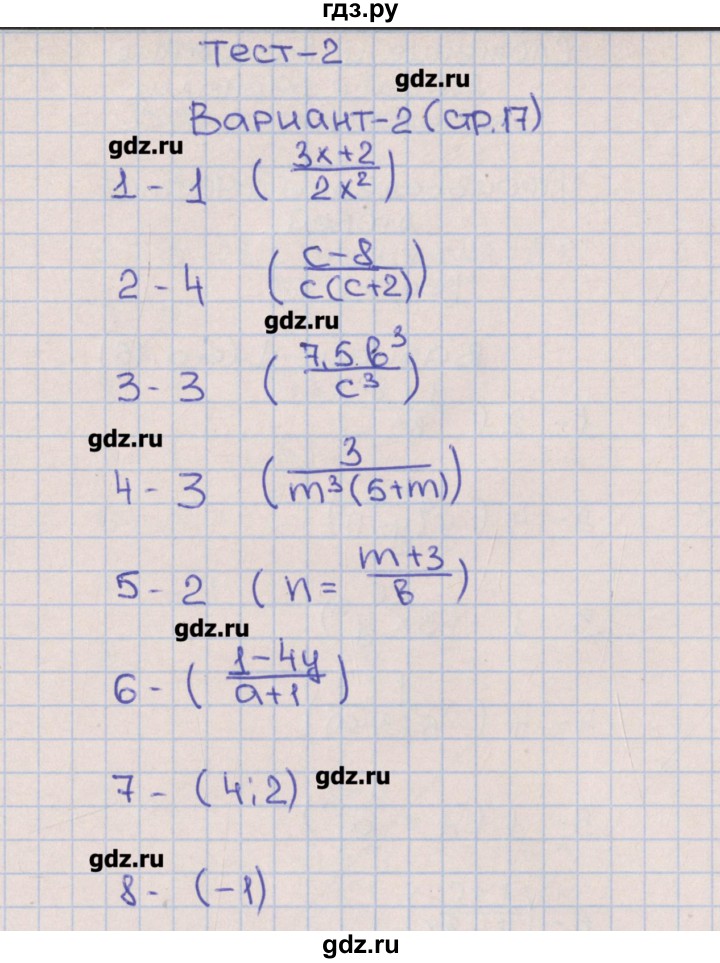 гдз.ру
Тест-2
gdz.ru
Вариант-2 (стр.17)
gdz.ru
1 - 1 ( (3x+2)/(2x²) )
2 - 4 ( (c-8)/(c(c+2)) )
gdz.ru
3 - 3 ( (7,5 в³)/(c³) )
gdz.ru
4 - 3 ( 3/(m³(5+m)) )
5 - 2 ( n = (m+3)/в )
gdz.ru
6 - ( (1-4y)/(a+1) )
7 - (4;2) gdz.ru
gdz.ru
8 - (-1)
gdz.ru